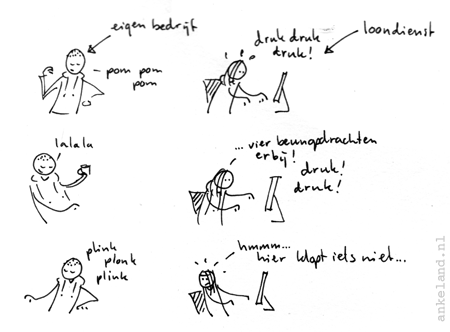 eigen bedrijf
pom pom
pom
druk druk
druk!
loondienst
lalala
... vier beunopdrachten
erbij!
druk!
druk!
plink
plonk
plink
hmmm...
hier klopt iets niet...
ankeland.nl